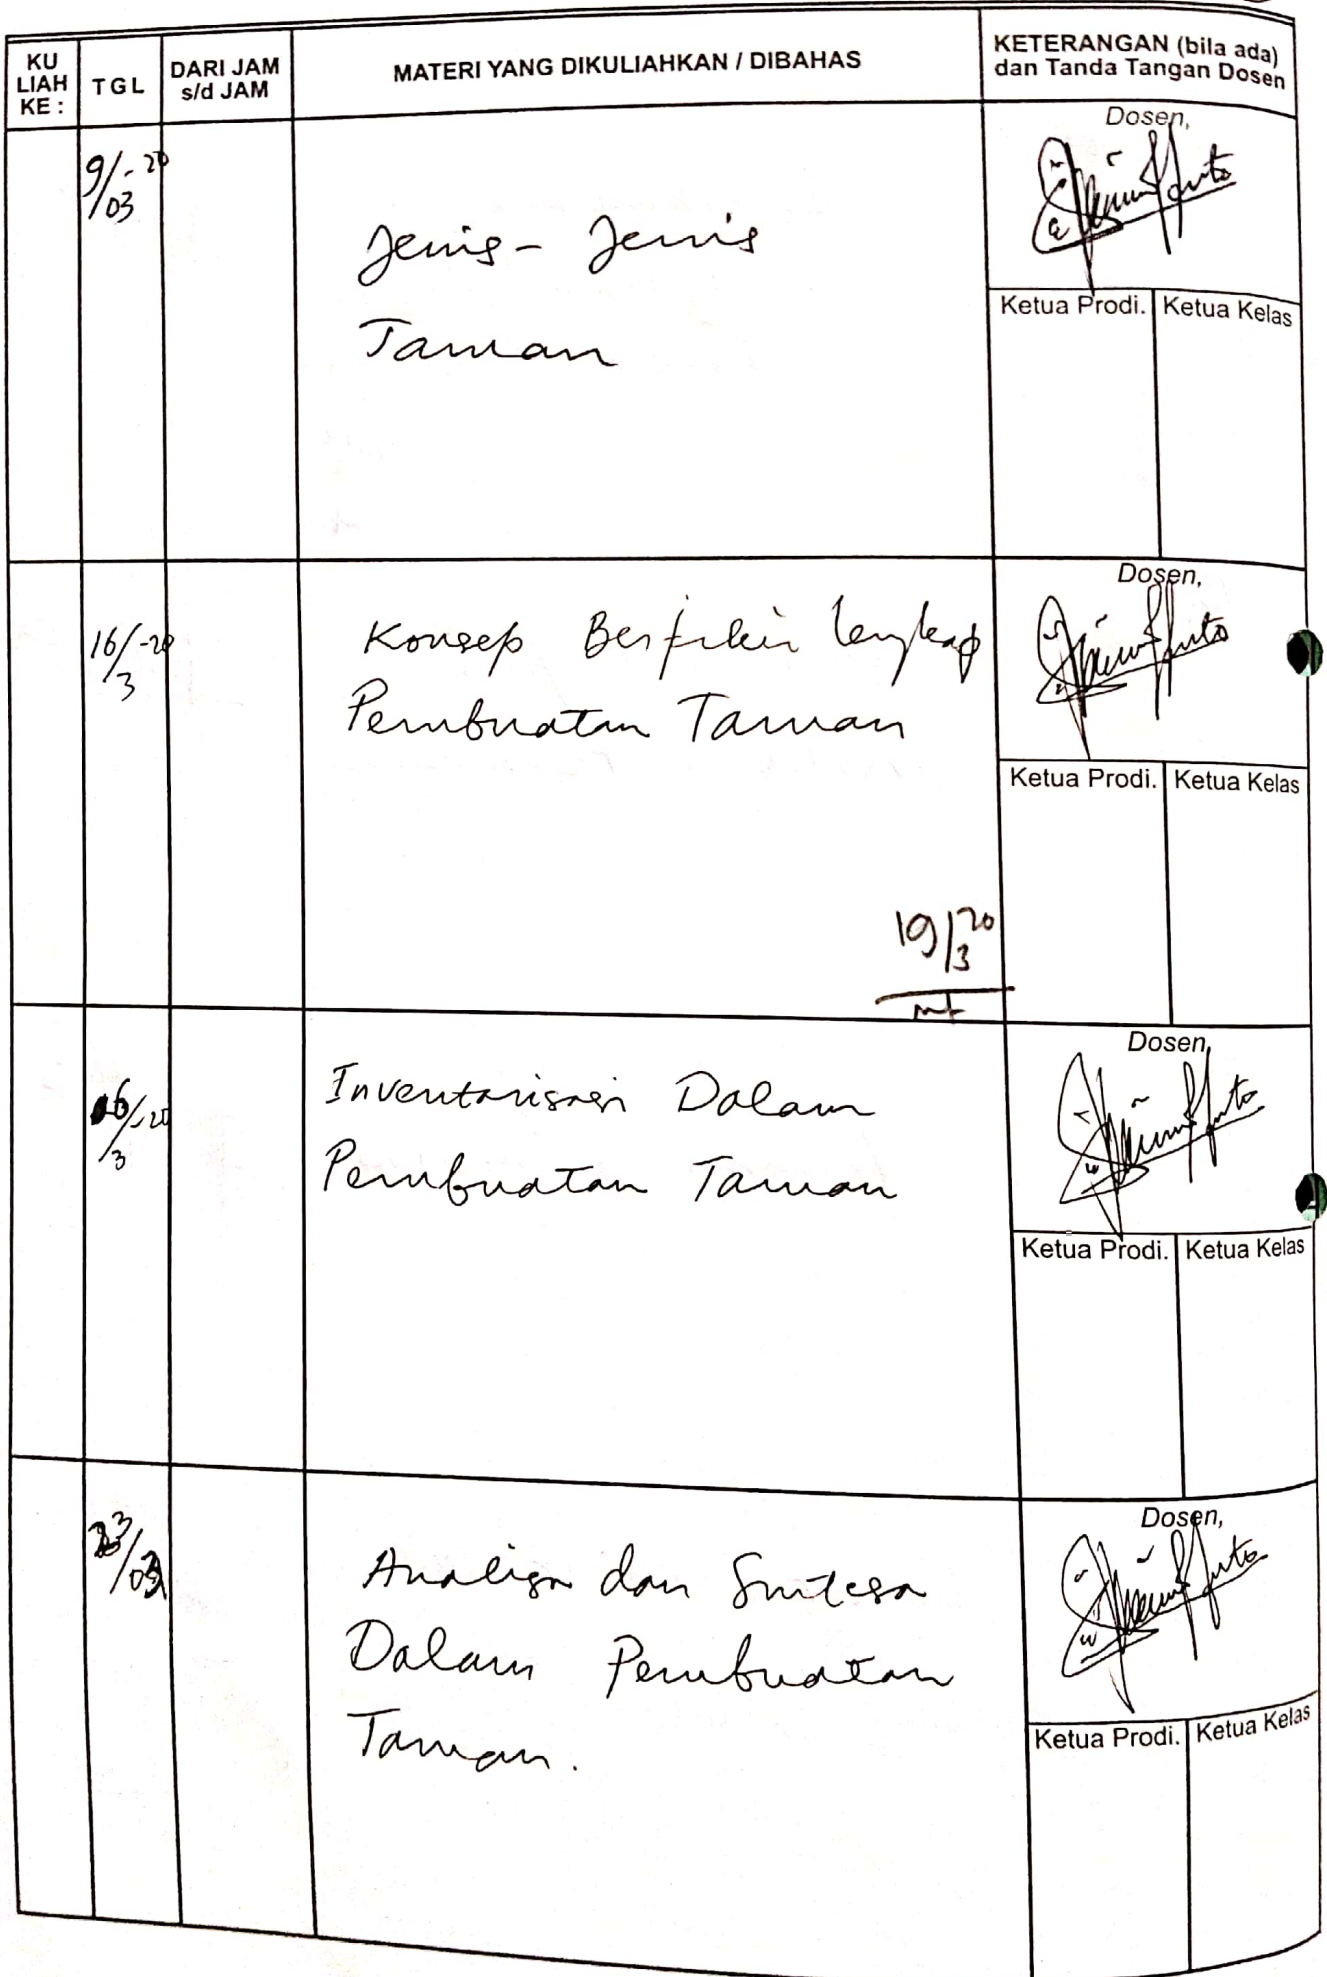 KU
LIAH
KE :
TGL
DARI JAM
s/d JAM
MATERI YANG DIKULIAHKAN / DIBAHAS
KETERANGAN (bila ada)
dan Tanda Tangan Dosen
9/03-20
Jenis - Jenis
Taman
Dosen,
Ketua Prodi. Ketua Kelas
16/3-20
Konsep Berfikir lengkap
Pembuatan Taman
19/3 20
Dosen,
Ketua Prodi. Ketua Kelas
/3-20
Inventarisasi Dalam
Pembuatan Taman
Dosen,
Ketua Prodi. Ketua Kelas
23/03
Analisa dan Sintesa
Dalam Pembuatan
Taman.
Dosen,
Ketua Prodi. Ketua Kelas